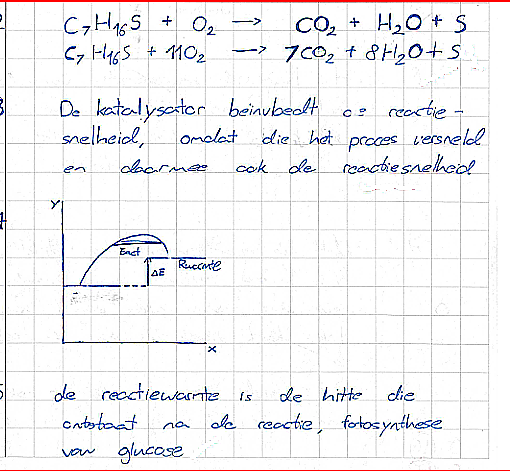 2
C₇H₁₆S + O₂ → CO₂ + H₂O + S
C₇H₁₆S + 11O₂ → 7CO₂ + 8H₂O + S
3
De katalysator beinvloedt de reactie-
snelheid, omdat die het proces versneld
en daarmee ook de reactiesnelheid
Y
Eact
ΔE
X
5
de reactiewarmte is de hitte die
ontstaat na de reactie, fotosynthese
van glucose